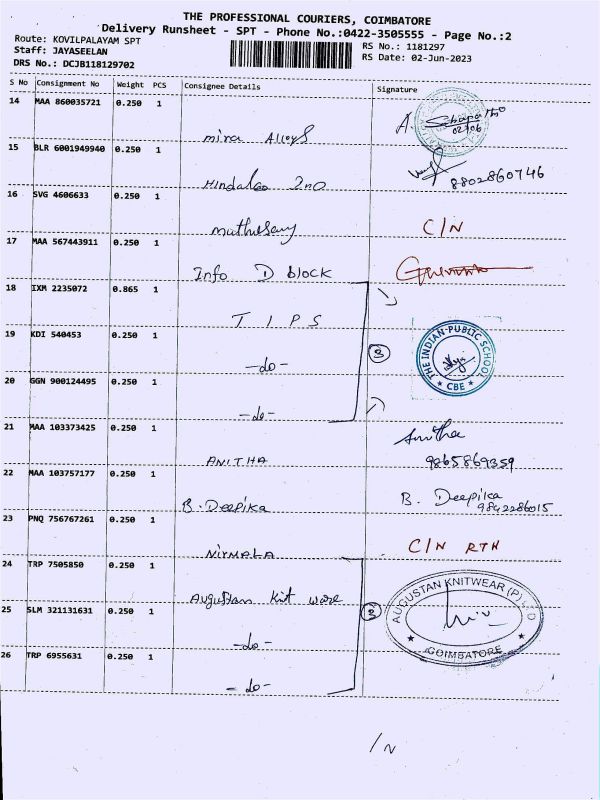 THE PROFESSIONAL COURIERS, COIMBATORE
Delivery Runsheet - SPT - Phone No.:0422-3505555 - Page No.:2
Route: KOVILPALAYAM SPT
RS No.: 1181297
Staff: JAYASEELAN
RS Date: 02-Jun-2023
DRS No.: DCJB118129702
S No Consignment No Weight PCS Consignee Details Signature
14 MAA 860035721 0.250 1
mira Alloys
A.
02/06
15 BLR 6001949940 0.250 1
Hindalco 2no
8802860746
16 SVG 4606633 0.250 1
muthusamy C/N
17 MAA 567443911 0.250 1
Info D block
18 IXM 2235072 0.865 1
T I P S
19 KDI 540453 0.250 1
-do-
3
THE INDIAN PUBLIC SCHOOL
CBE
20 GGN 900124495 0.250 1
-do-
21 MAA 103373425 0.250 1
ANITHA
Anitha
9865869359
22 MAA 103757177 0.250 1
B. Deepika
B. Deepika
9842286015
23 PNQ 756767261 0.250 1
NIRMALA C/N RTH
24 TRP 7505850 0.250 1
Augustan Knit ware
25 SLM 321131631 0.250 1
-do-
AUGUSTAN KNITWEAR (P) LTD
COIMBATORE
26 TRP 6955631 0.250 1
-do-
/N